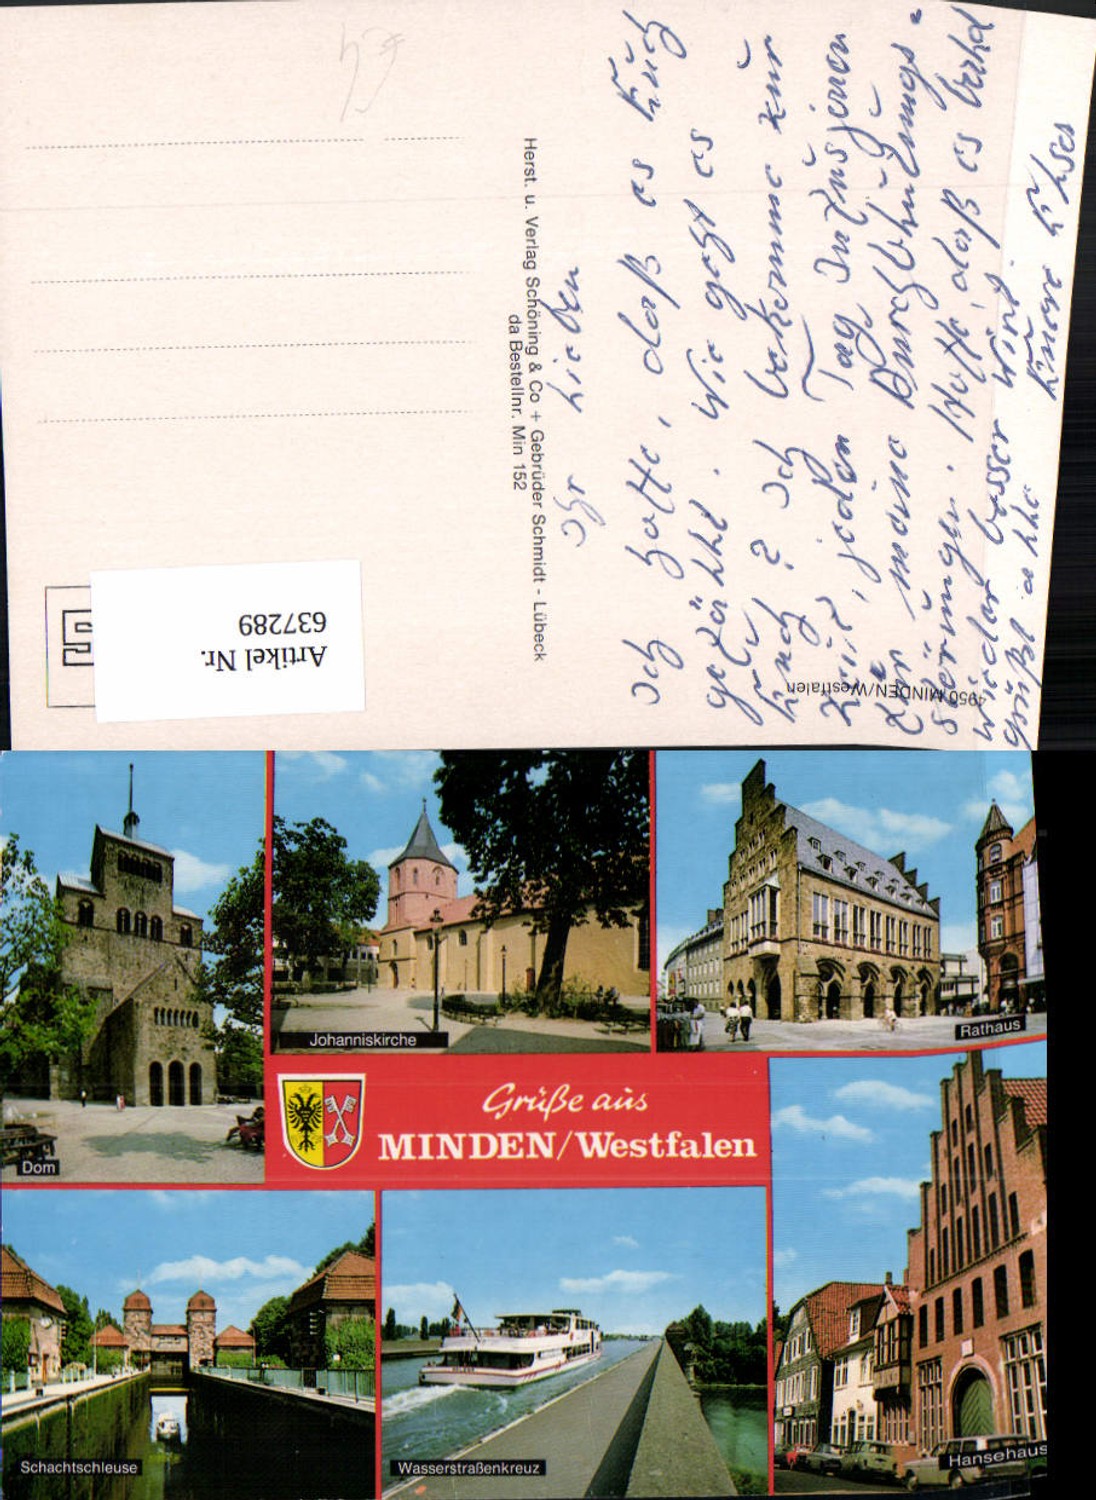 Ihr Lieben
Ich hoffe, daß es Euch
gefällt. Wie geht es
Euch? Ich bekomme zur
Zeit, jeden Tag
für meine Durchblutungs-
störungen. Hoffe, daß es bald
wieder besser wird.
Grüßt alle Eure
Herst. u. Verlag Schöning & Co + Gebrüder Schmidt - Lübeck
da Bestellnr. Min 152
4950 MINDEN/Westfalen
Artikel Nr.
637289
Dom
Johanniskirche
Rathaus
Grüße aus
MINDEN/Westfalen
Schachtschleuse
Wasserstraßenkreuz
Hansehaus